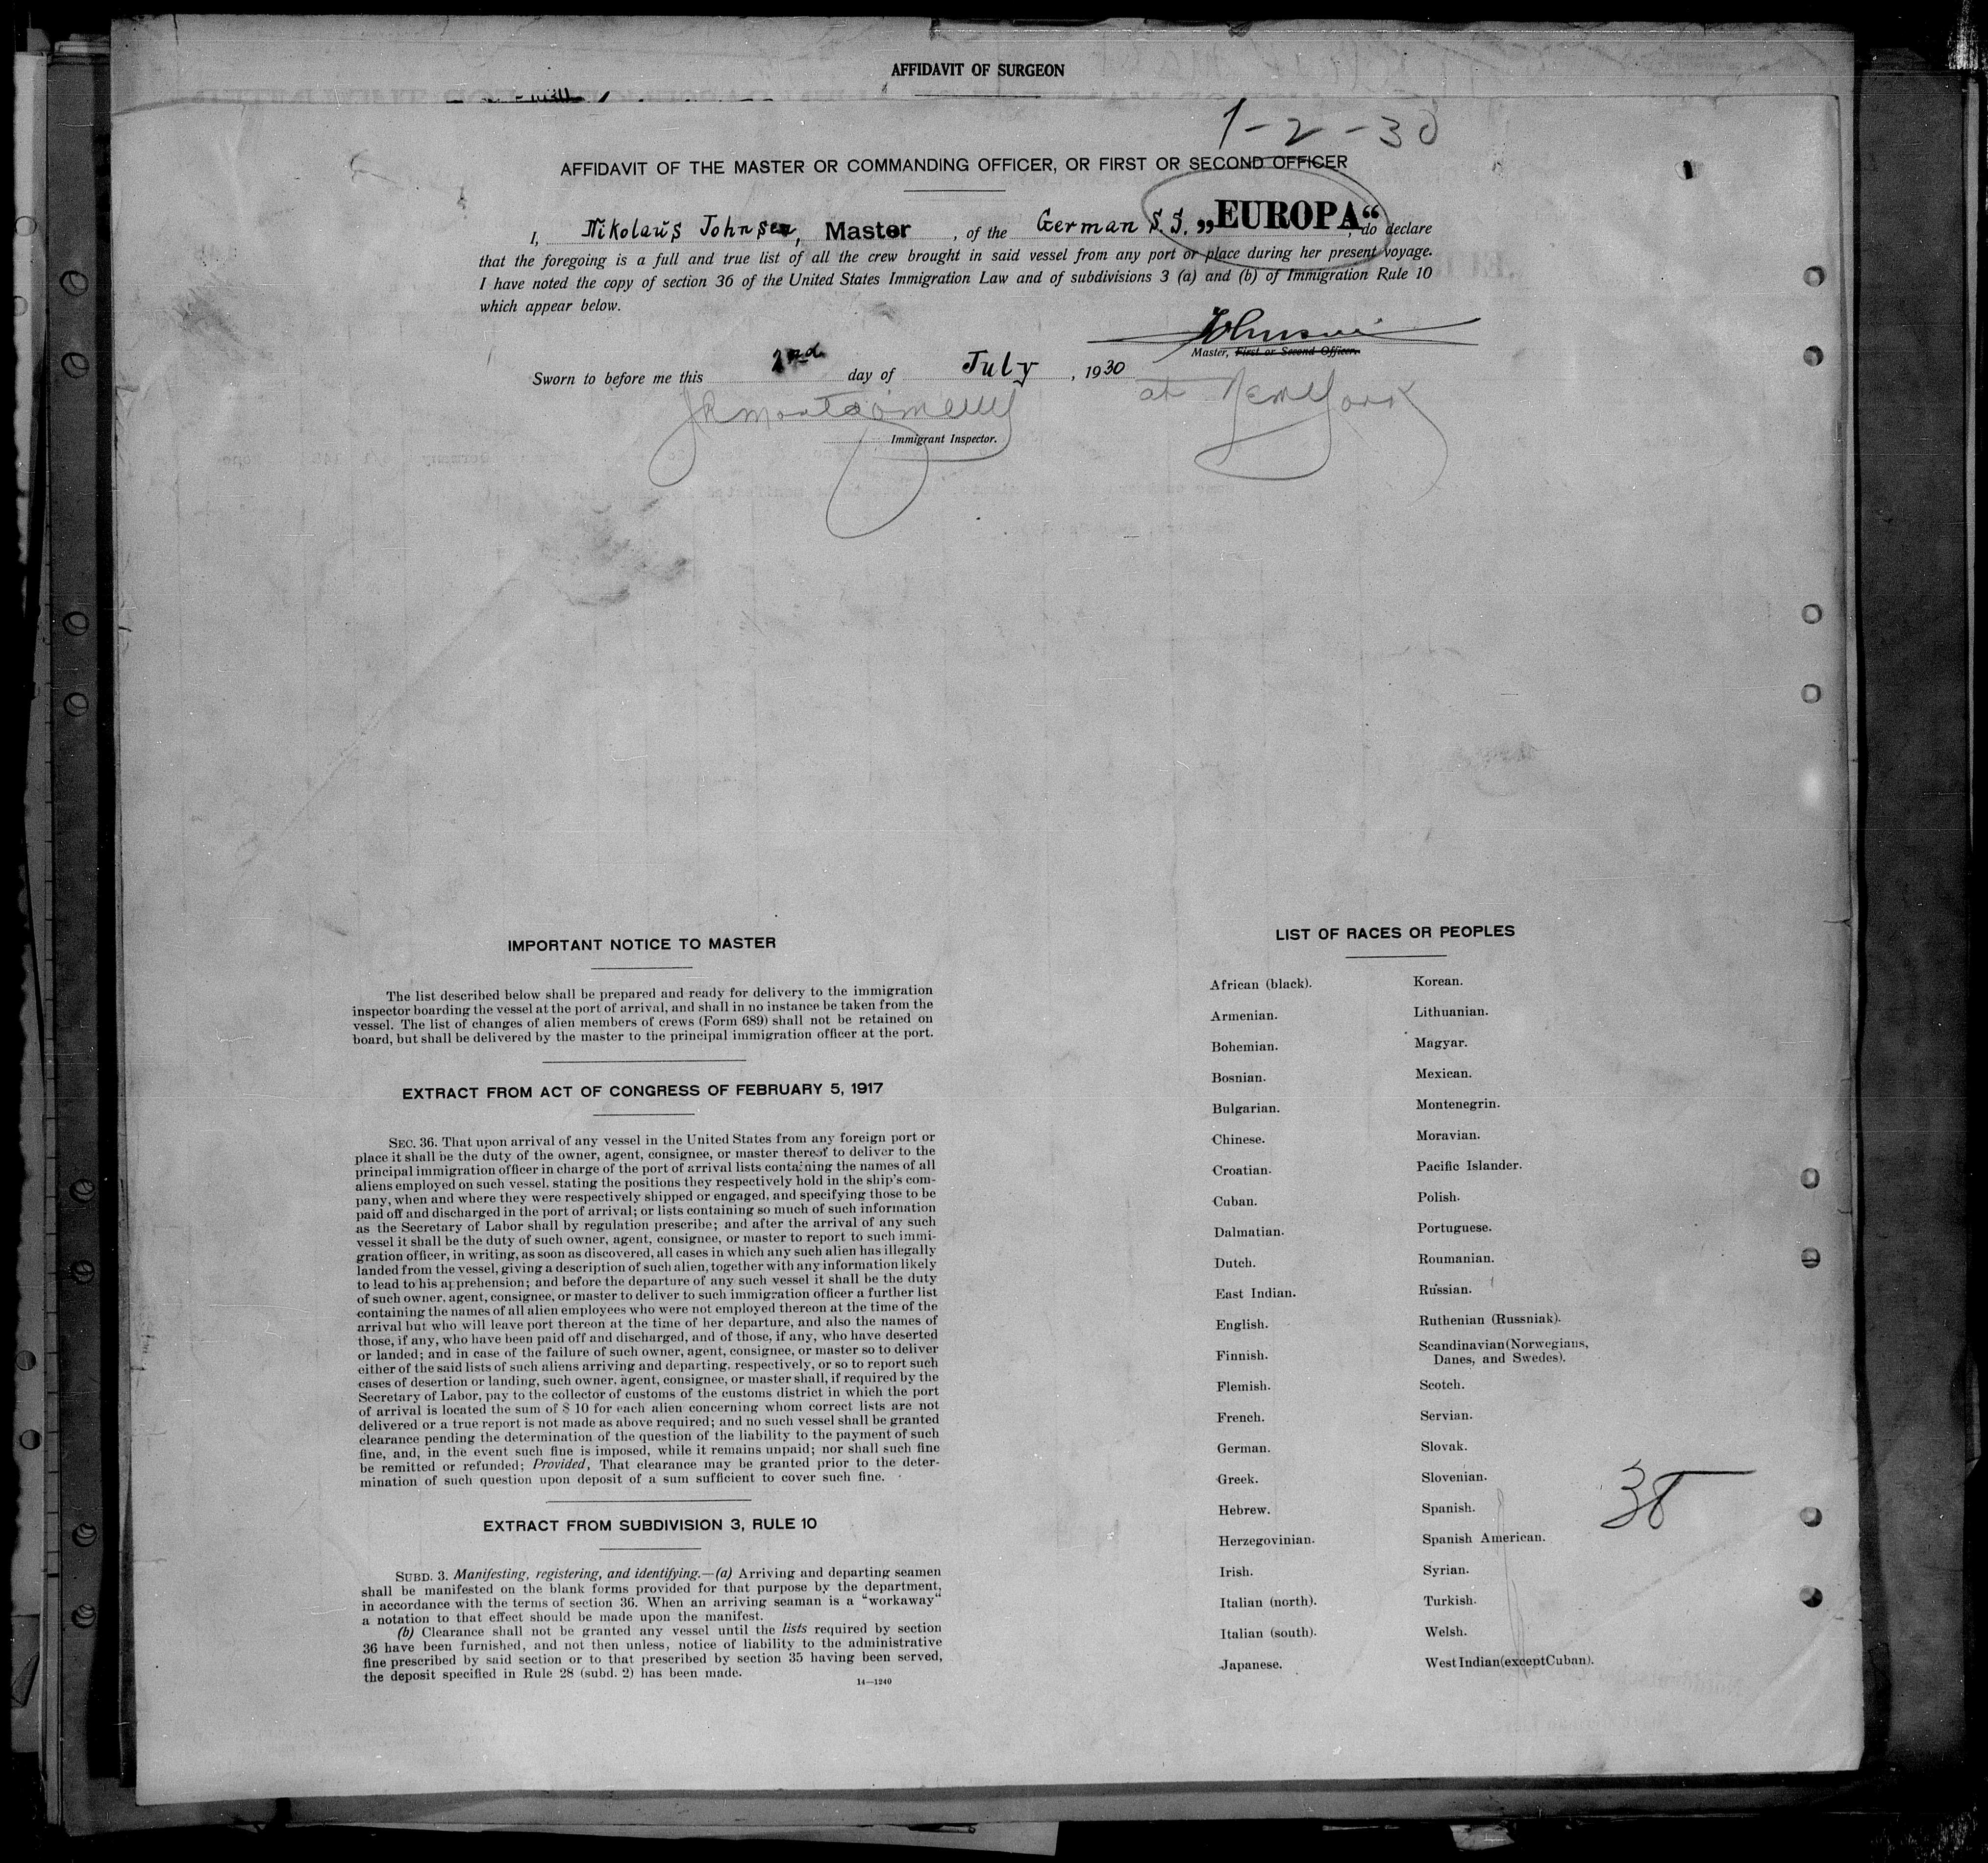 AFFIDAVIT OF SURGEON
AFFIDAVIT OF THE MASTER OR COMMANDING OFFICER, OR FIRST OR SECOND OFFICER
I, Nikolaus Johnsen, Master, of the German S.S. „EUROPA“, do declare
that the foregoing is a full and true list of all the crew brought in said vessel from any port or place during her present voyage.
I have noted the copy of section 36 of the United States Immigration Law and of subdivisions 3 (a) and (b) of Immigration Rule 10
which appear below.
Johnsen
Master, First or Second Officer.
Sworn to before me this 2nd day of July, 1930
at New York
Immigrant Inspector.
IMPORTANT NOTICE TO MASTER
The list described below shall be prepared and ready for delivery to the immigration
inspector boarding the vessel at the port of arrival, and shall in no instance be taken from the
vessel. The list of changes of alien members of crews (Form 689) shall not be retained on
board, but shall be delivered by the master to the principal immigration officer at the port.
EXTRACT FROM ACT OF CONGRESS OF FEBRUARY 5, 1917
SEC. 36. That upon arrival of any vessel in the United States from any foreign port or
place it shall be the duty of the owner, agent, consignee, or master thereof to deliver to the
principal immigration officer in charge of the port of arrival lists containing the names of all
aliens employed on such vessel, stating the positions they respectively hold in the ship's com-
pany, when and where they were respectively shipped or engaged, and specifying those to be
paid off and discharged in the port of arrival; or lists containing so much of such information
as the Secretary of Labor shall by regulation prescribe; and after the arrival of any such
vessel it shall be the duty of such owner, agent, consignee, or master to report to such immi-
gration officer, in writing, as soon as discovered, all cases in which any such alien has illegally
landed from the vessel, giving a description of such alien, together with any information likely
to lead to his apprehension; and before the departure of any such vessel it shall be the duty
of such owner, agent, consignee, or master to deliver to such immigration officer a further list
containing the names of all alien employees who were not employed thereon at the time of the
arrival but who will leave port thereon at the time of her departure, and also the names of
those, if any, who have been paid off and discharged, and of those, if any, who have deserted
or landed; and in case of the failure of such owner, agent, consignee, or master so to deliver
either of the said lists of such aliens arriving and departing, respectively, or so to report such
cases of desertion or landing, such owner, agent, consignee, or master shall, if required by the
Secretary of Labor, pay to the collector of customs of the customs district in which the port
of arrival is located the sum of $ 10 for each alien concerning whom correct lists are not
delivered or a true report is not made as above required; and no such vessel shall be granted
clearance pending the determination of the question of the liability to the payment of such
fine, and, in the event such fine is imposed, while it remains unpaid; nor shall such fine
be remitted or refunded; Provided, That clearance may be granted prior to the deter-
mination of such question upon deposit of a sum sufficient to cover such fine.
EXTRACT FROM SUBDIVISION 3, RULE 10
SUBD. 3. Manifesting, registering, and identifying.—(a) Arriving and departing seamen
shall be manifested on the blank forms provided for that purpose by the department,
in accordance with the terms of section 36. When an arriving seaman is a “workaway“
a notation to that effect should be made upon the manifest.
(b) Clearance shall not be granted any vessel until the lists required by section
36 have been furnished, and not then unless, notice of liability to the administrative
fine prescribed by said section or to that prescribed by section 35 having been served,
the deposit specified in Rule 28 (subd. 2) has been made.
14—1240
LIST OF RACES OR PEOPLES
African (black).
Armenian.
Bohemian.
Bosnian.
Bulgarian.
Chinese.
Croatian.
Cuban.
Dalmatian.
Dutch.
East Indian.
English.
Finnish.
Flemish.
French.
German.
Greek.
Hebrew.
Herzegovinian.
Irish.
Italian (north).
Italian (south).
Japanese.
Korean.
Lithuanian.
Magyar.
Mexican.
Montenegrin.
Moravian.
Pacific Islander.
Polish.
Portuguese.
Roumanian.
Russian.
Ruthenian (Russniak).
Scandinavian (Norwegians,
Danes, and Swedes).
Scotch.
Servian.
Slovak.
Slovenian.
Spanish.
Spanish American.
Syrian.
Turkish.
Welsh.
West Indian (except Cuban).
38